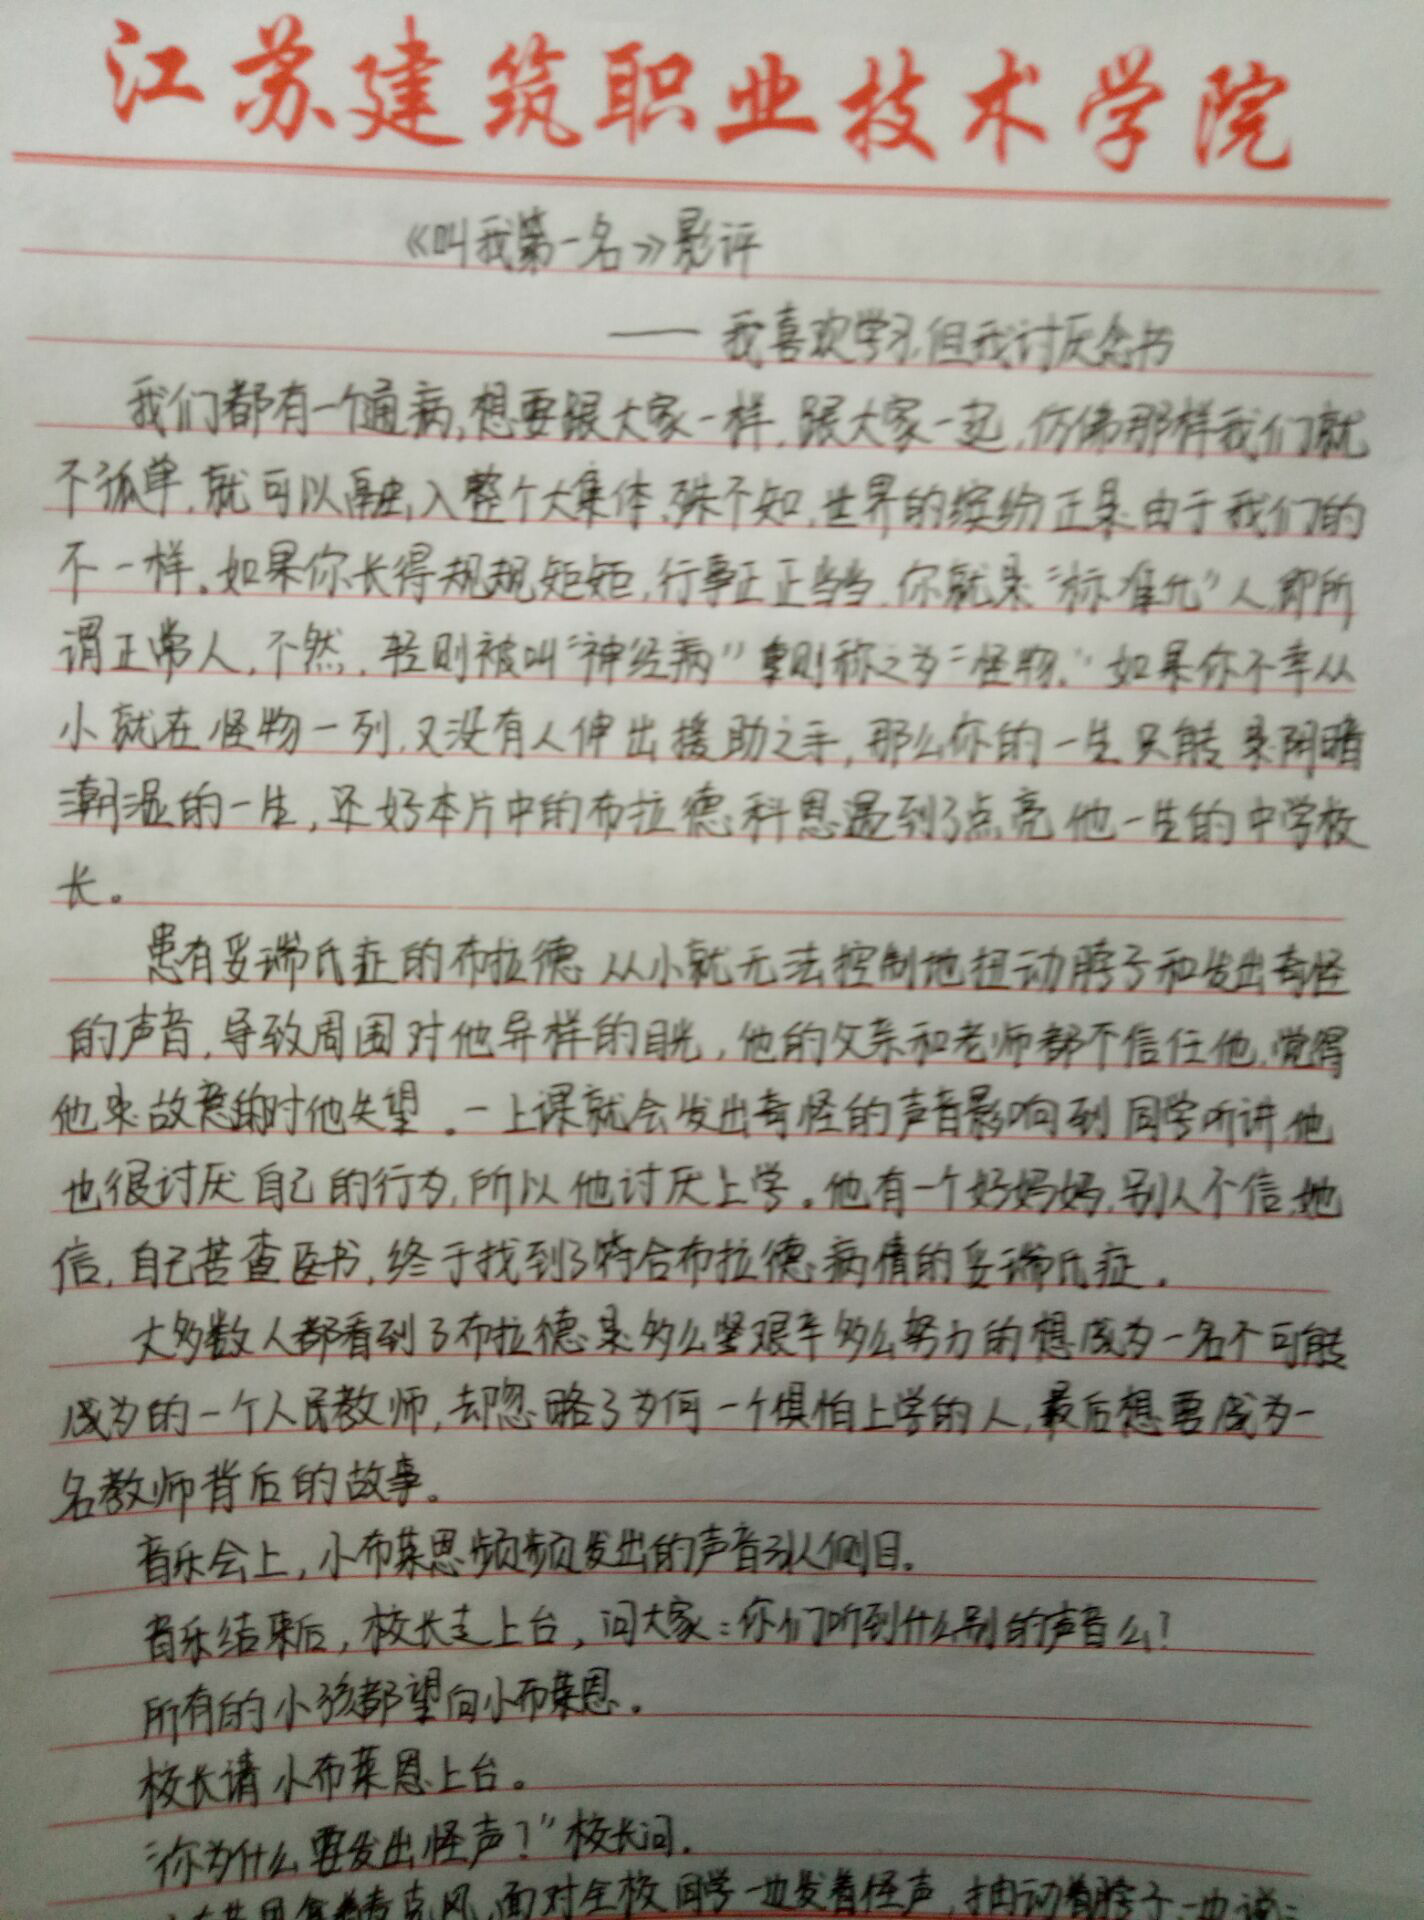 江苏建筑职业技术学院
《叫我第一名》影评
——我喜欢学习,但我讨厌念书
我们都有一个通病,想要跟大家一样,跟大家一起,仿佛那样我们就
不孤单,就可以融入整个大集体,殊不知,世界的缤纷正是由于我们的
不一样。如果你长得规规矩矩,行事正正当当,你就是“标准化”人,即所
谓正常人,不然,轻则被叫“神经病”重则称之为“怪物。”如果你不幸从
小就在怪物一列,又没有人伸出援助之手,那么你的一生只能是阴暗
潮湿的一生,还好本片中的布拉德科恩遇到了点亮他一生的中学校
长。
患有妥瑞氏症的布拉德从小就无法控制地扭动脖子和发出奇怪
的声音,导致周围对他异样的目光,他的父亲和老师都不信任他,觉得
他是故意的对他失望。一上课就会发出奇怪的声音影响到同学听讲,他
也很讨厌自己的行为,所以他讨厌上学。他有一个好妈妈,别人不信,她
信,自己苦查医书,终于找到了符合布拉德病情的妥瑞氏症。
大多数人都看到了布拉德是多么坚艰辛多么努力的想成为一名不可能
成为的一个人民教师,却忽略了为何一个惧怕上学的人,最后想要成为一
名教师背后的故事。
音乐会上,小布莱恩频频发出的声音引人侧目。
音乐结束后,校长走上台,问大家:你们听到什么别的声音么!
所有的小孩都望向小布莱恩。
校长请小布莱恩上台。
“你为什么要发出怪声?”校长问。
面对全校同学一边发着怪声,扭动着脖子一边说: